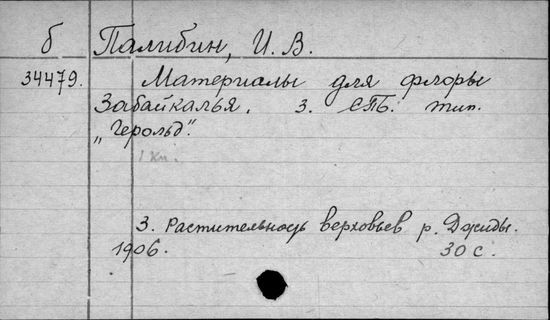 б Палибин, И. В.
34479. Материалы для флоры
Забайкалья. 3. СПБ. тип.
„Герольд".
1 кн.
3. Растительность верховьев р. Джиды.
1906. 30 с.